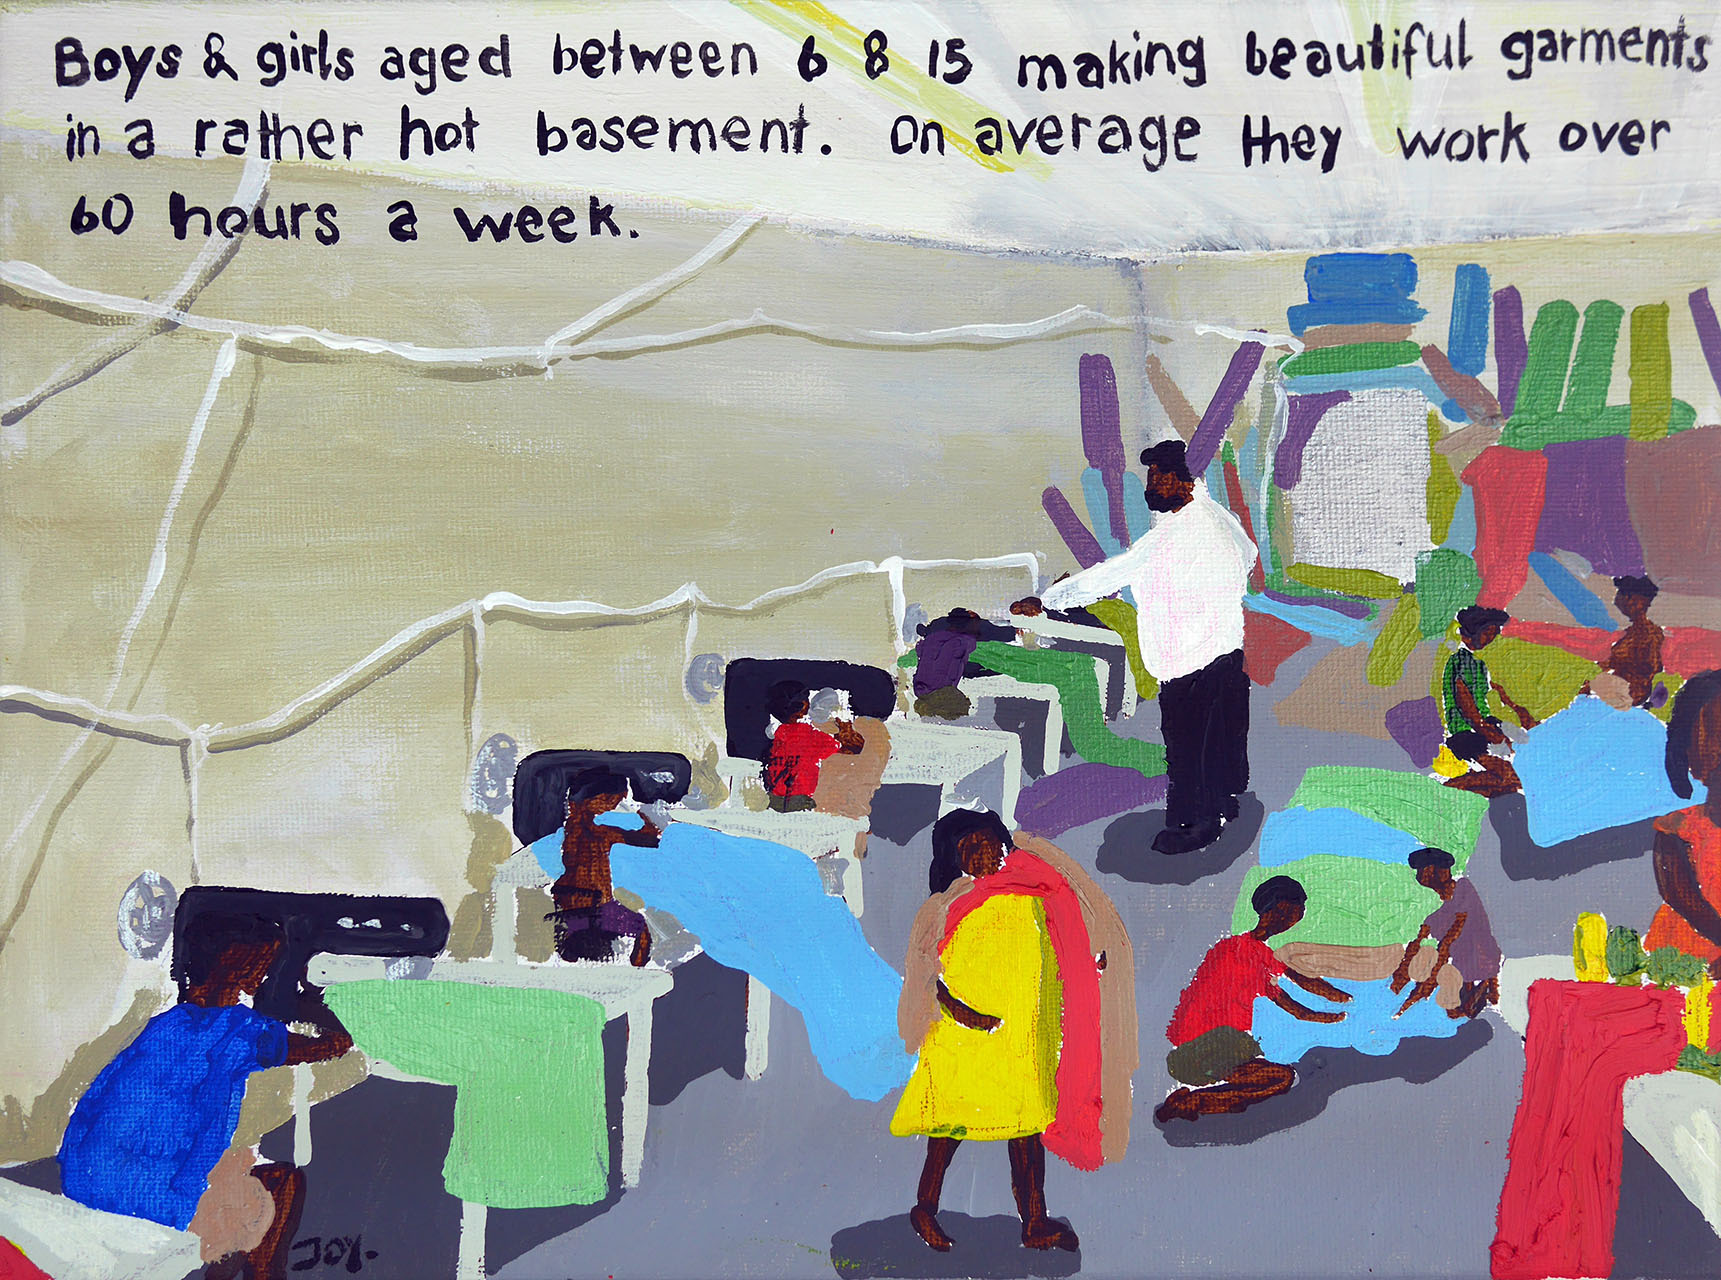 Boys & girls aged between 6 & 15 making beautiful garments
in a rather hot basement. On average they work over
60 hours a week.
JOY.